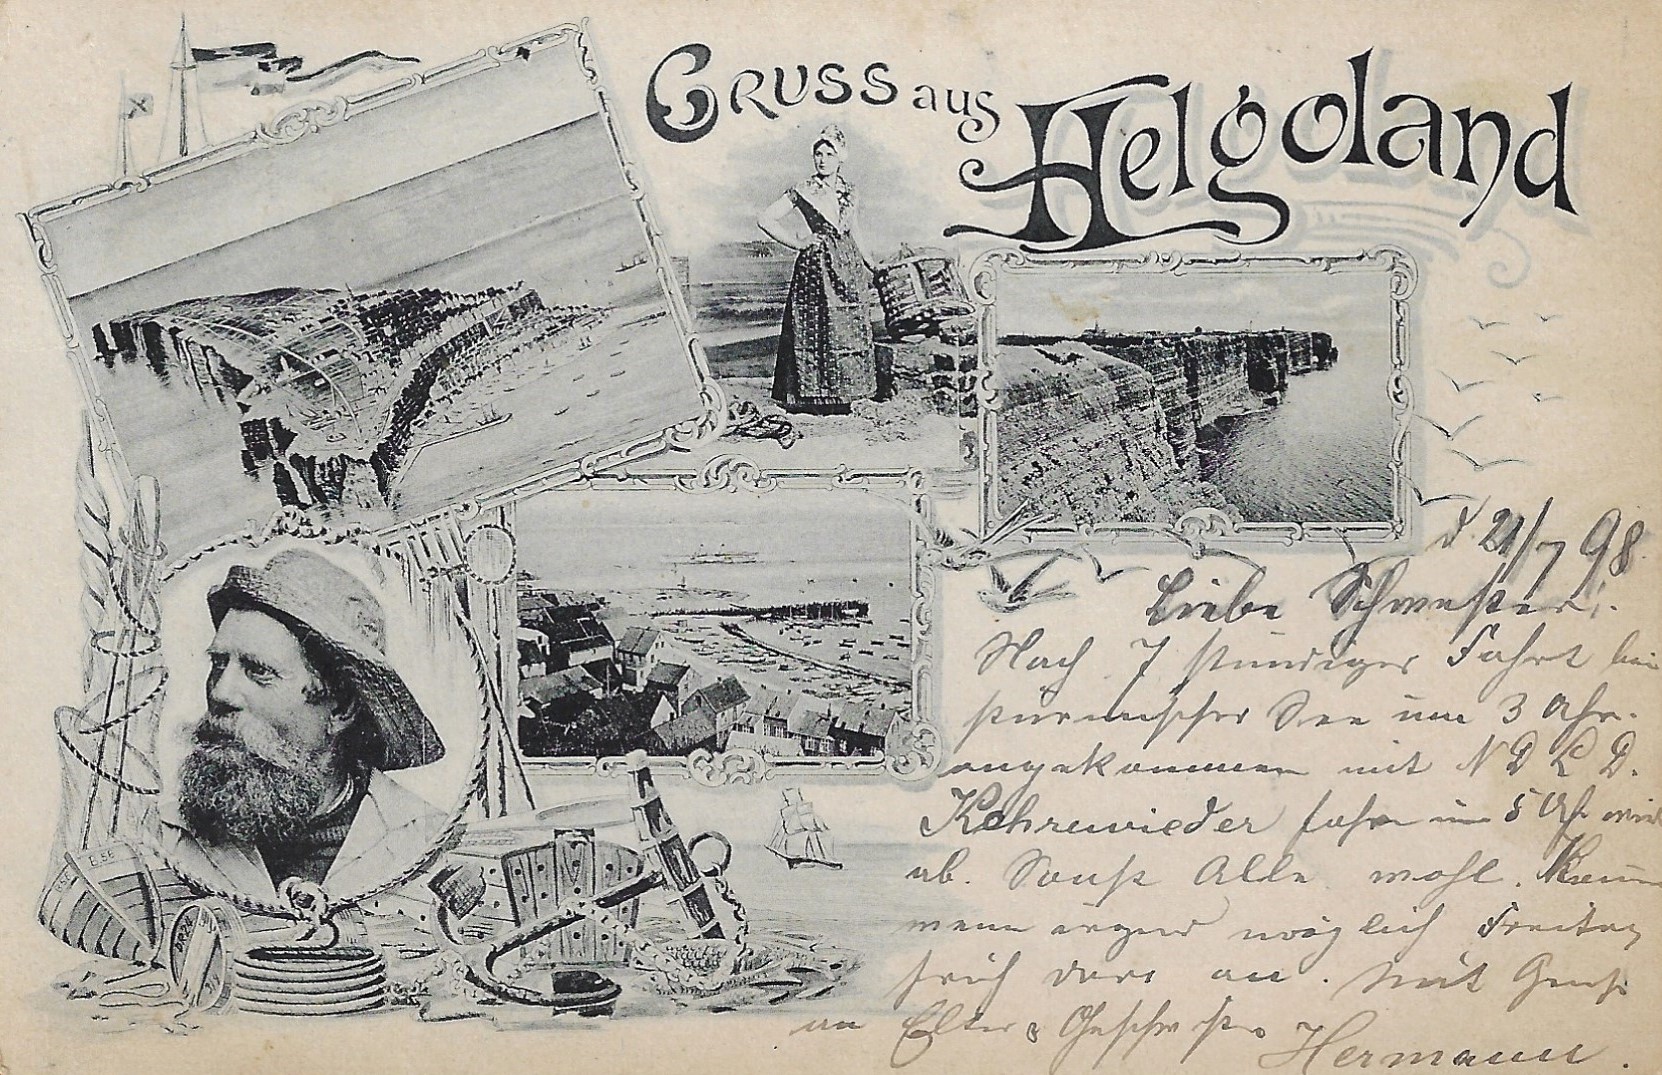 Gruss aus Helgoland
d. 21/7 98.
Liebe Schwester!
Nach 7 stündiger Fahrt bei
stürmischer See um 3 Uhr
angekommen mit N D L D.
Kehrewieder fahr um 5 Uhr
ab. Sonst Alle wohl.
wenn irgend möglich Freitag
früh dort an. Mit Gruß
an Elter & Geschwister
Hermann.